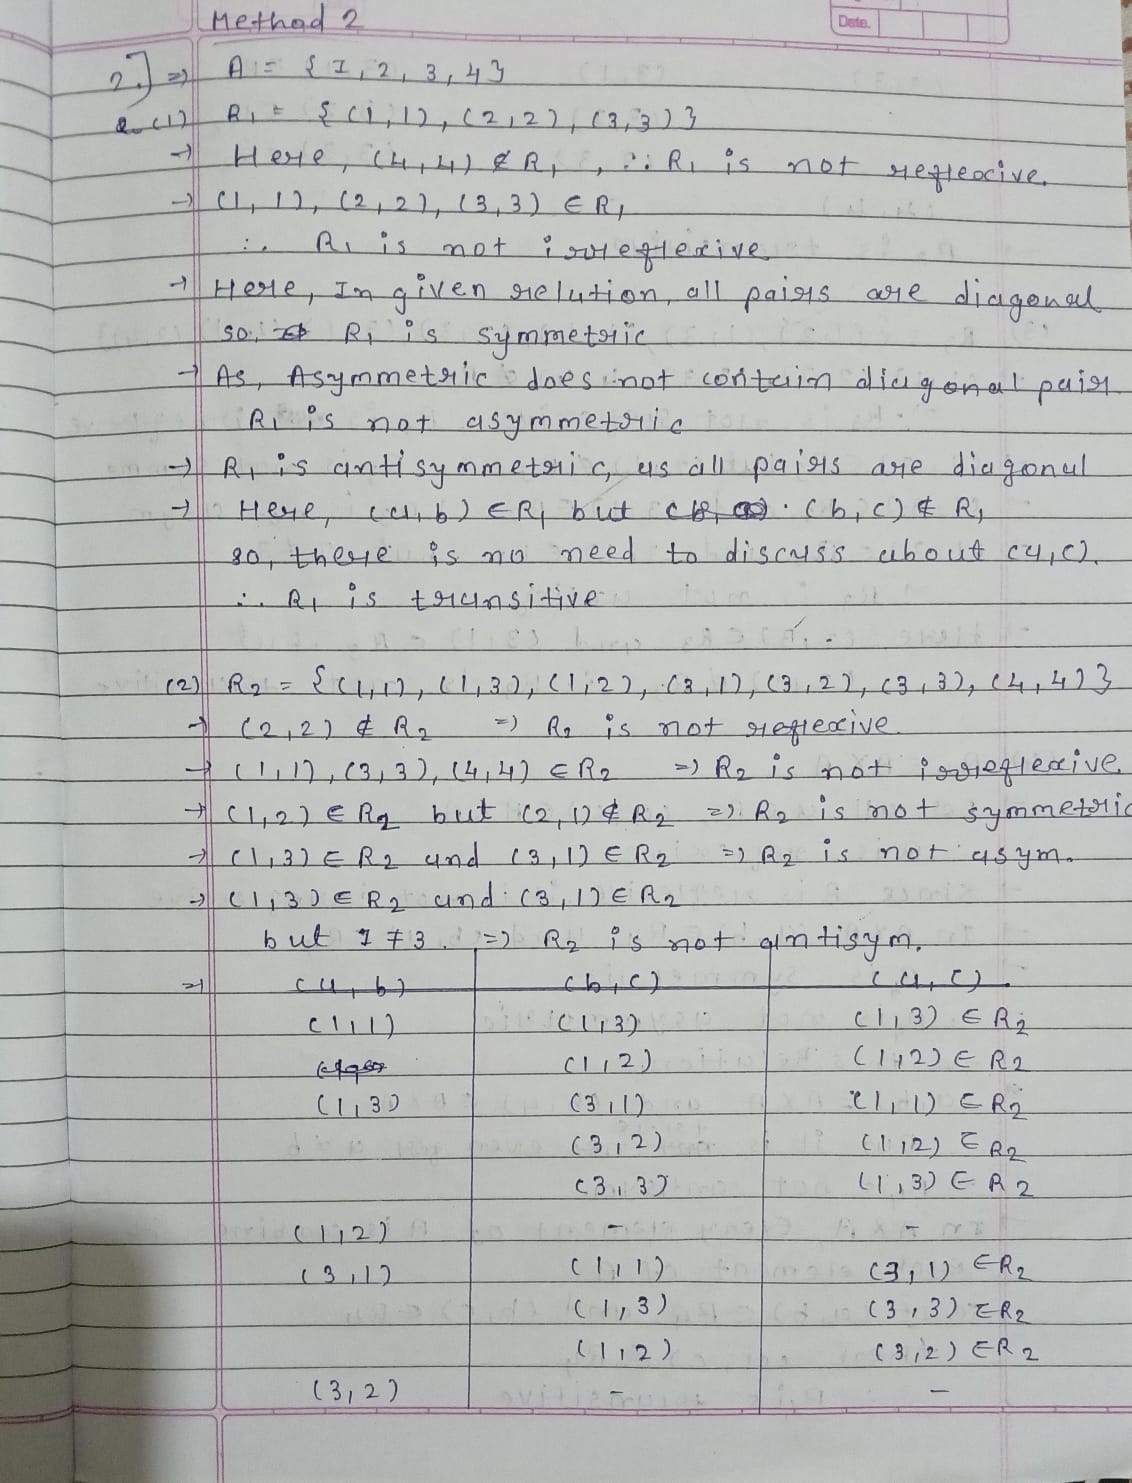 Method 2
Date.
2.] ⇒ A = { 1, 2, 3, 4 }
(1) R₁ = { (1,1), (2,2), (3,3) }
→ Here, (4,4) ∉ R₁, ∴ R₁ is not reflexive.
→ (1,1), (2,2), (3,3) ∈ R₁
∴ R₁ is not irreflexive
→ Here, In given relution, all pairs are diagonal
so, R₁ is symmetric
→ As, Asymmetric does not contain diagonal pair
R₁ is not asymmetric
→ R₁ is antisymmetric, as all pairs are diagonal
→ Here, (a,b) ∈ R₁ but (b,c) ∉ R₁
so, there is no need to discuss about (a,c).
∴ R₁ is transitive
(2) R₂ = { (1,1), (1,3), (1,2), (3,1), (3,2), (3,3), (4,4) }
→ (2,2) ∉ R₂ ⇒ R₂ is not reflexive
→ (1,1), (3,3), (4,4) ∈ R₂ ⇒ R₂ is not irreflexive
→ (1,2) ∈ R₂ but (2,1) ∉ R₂ ⇒ R₂ is not symmetric
→ (1,3) ∈ R₂ and (3,1) ∈ R₂ ⇒ R₂ is not asym.
→ (1,3) ∈ R₂ and (3,1) ∈ R₂
but 1 ≠ 3. ⇒ R₂ is not antisym.
⇒ (a,b) (b,c) (a,c)
(1,1) (1,3) (1,3) ∈ R₂
(1,2) (1,2) ∈ R₂
(1,3) (3,1) (1,1) ∈ R₂
(3,2) (1,2) ∈ R₂
(3,3) (1,3) ∈ R₂
(1,2) - -
(3,1) (1,1) (3,1) ∈ R₂
(1,3) (3,3) ∈ R₂
(1,2) (3,2) ∈ R₂
(3,2) - -